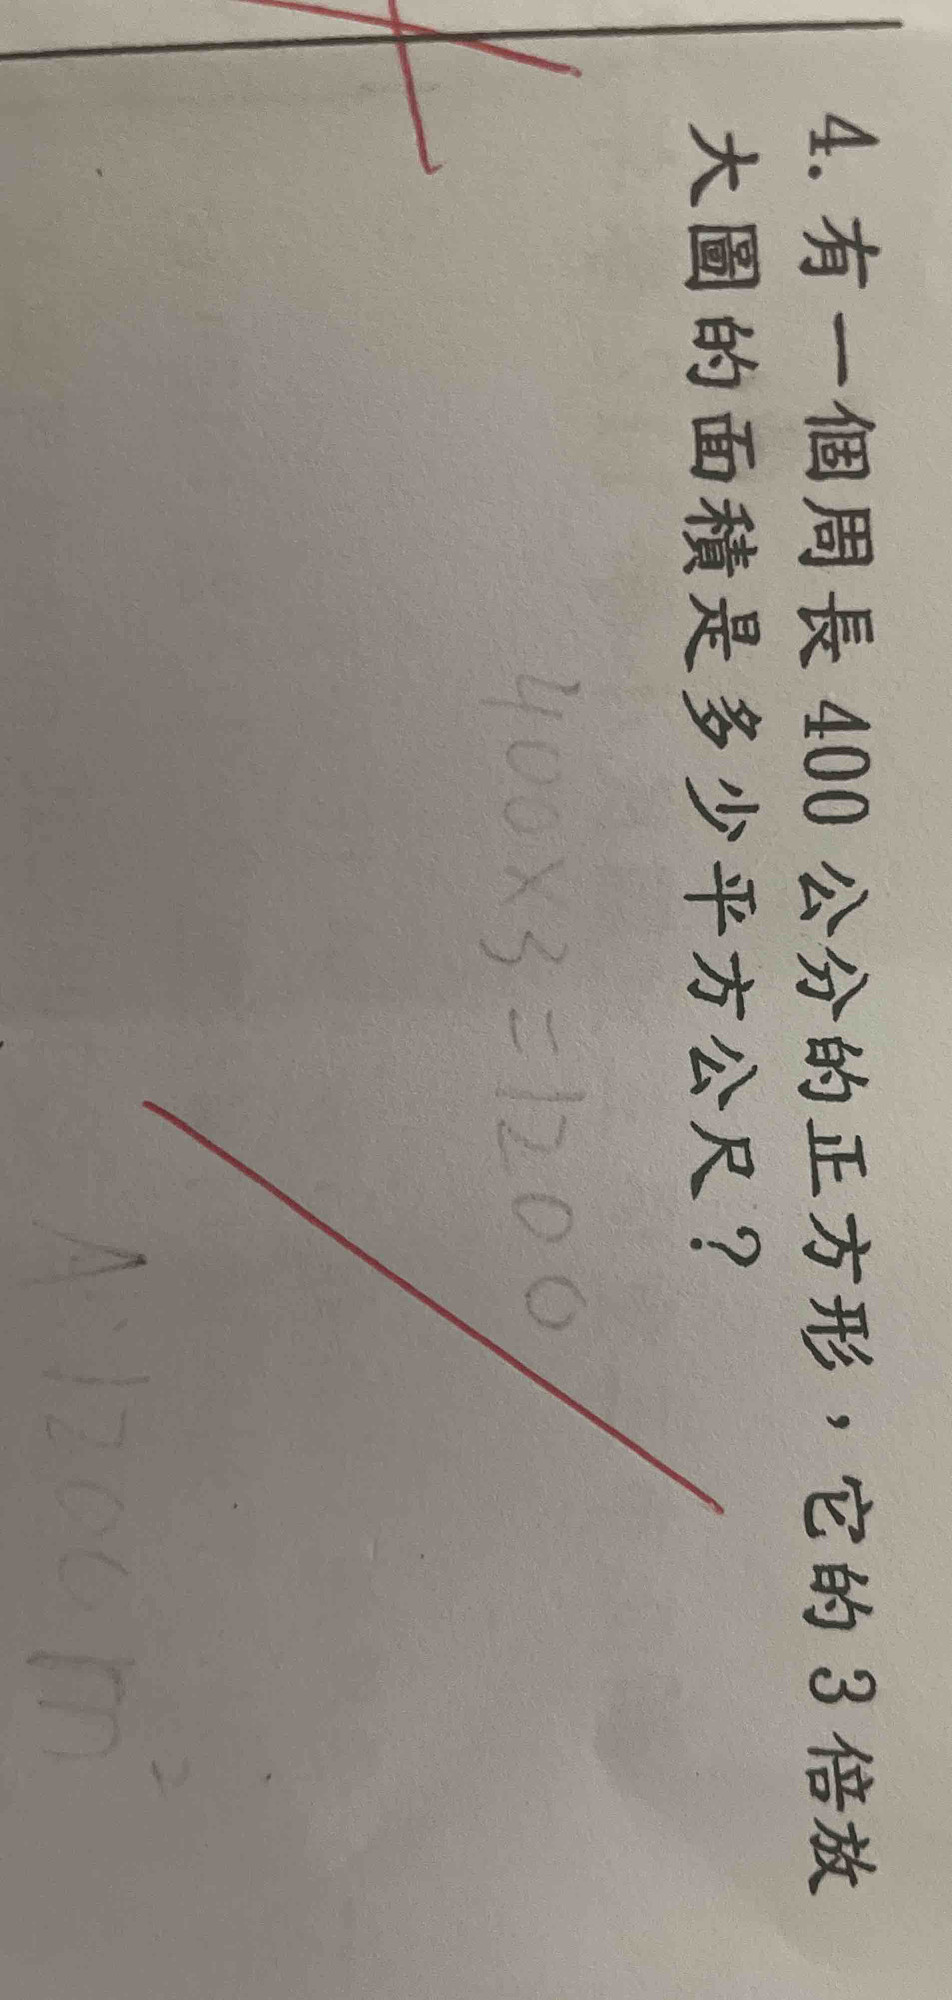 4. 有一個周長 400 公分的正方形，它的 3 倍放
大圖的面積是多少平方公尺？
400×3=1200
A:1200m²